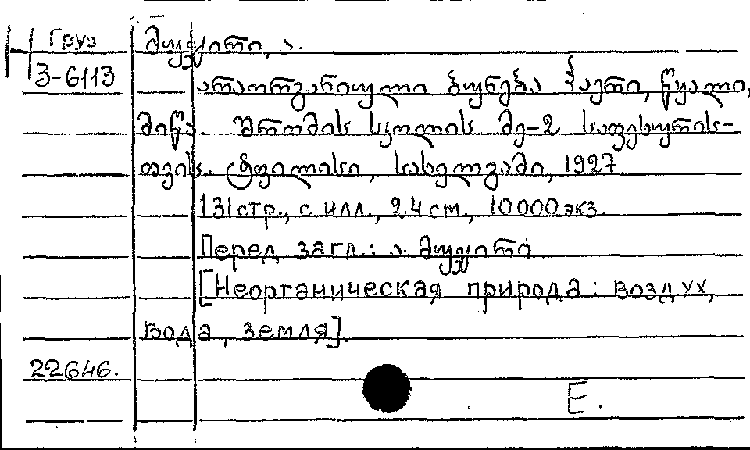 Груз
3-6113
მუყირი, ა.
არაორგანიული ბუნება ჰაერი, წყალი,
მიწა. შრომის სკოლის მე-2 საფეხურის-
თვის. ტფილისი, სახელგამი, 1927
131 стр., с илл., 24 см., 10000 экз.
Перед загл.: ა. მუყირი
[Неорганическая природа: воздух,
вода, земля].
22646.
Е.